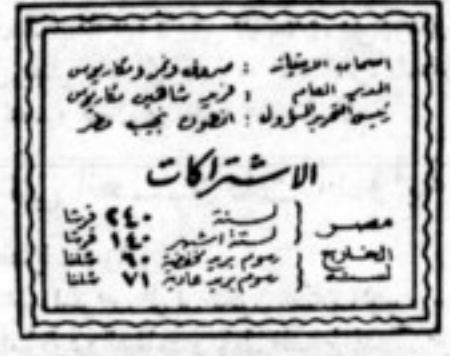 اصحاب الامتياز : صروف ونمر ومكاريوس
المدير العام : فريد شاهين مكاريوس
رئيس التحرير المسئول : انطون نجيب مطر
الاشتراكات
مصر { لسنة ٢٤٠ قرشا
لستة اشهر ١٤٠ قرشا
الخارج لسنة { رسوم بريد مخفضة ٩٠ شلنا
رسوم بريد عادية ٧١ شلنا